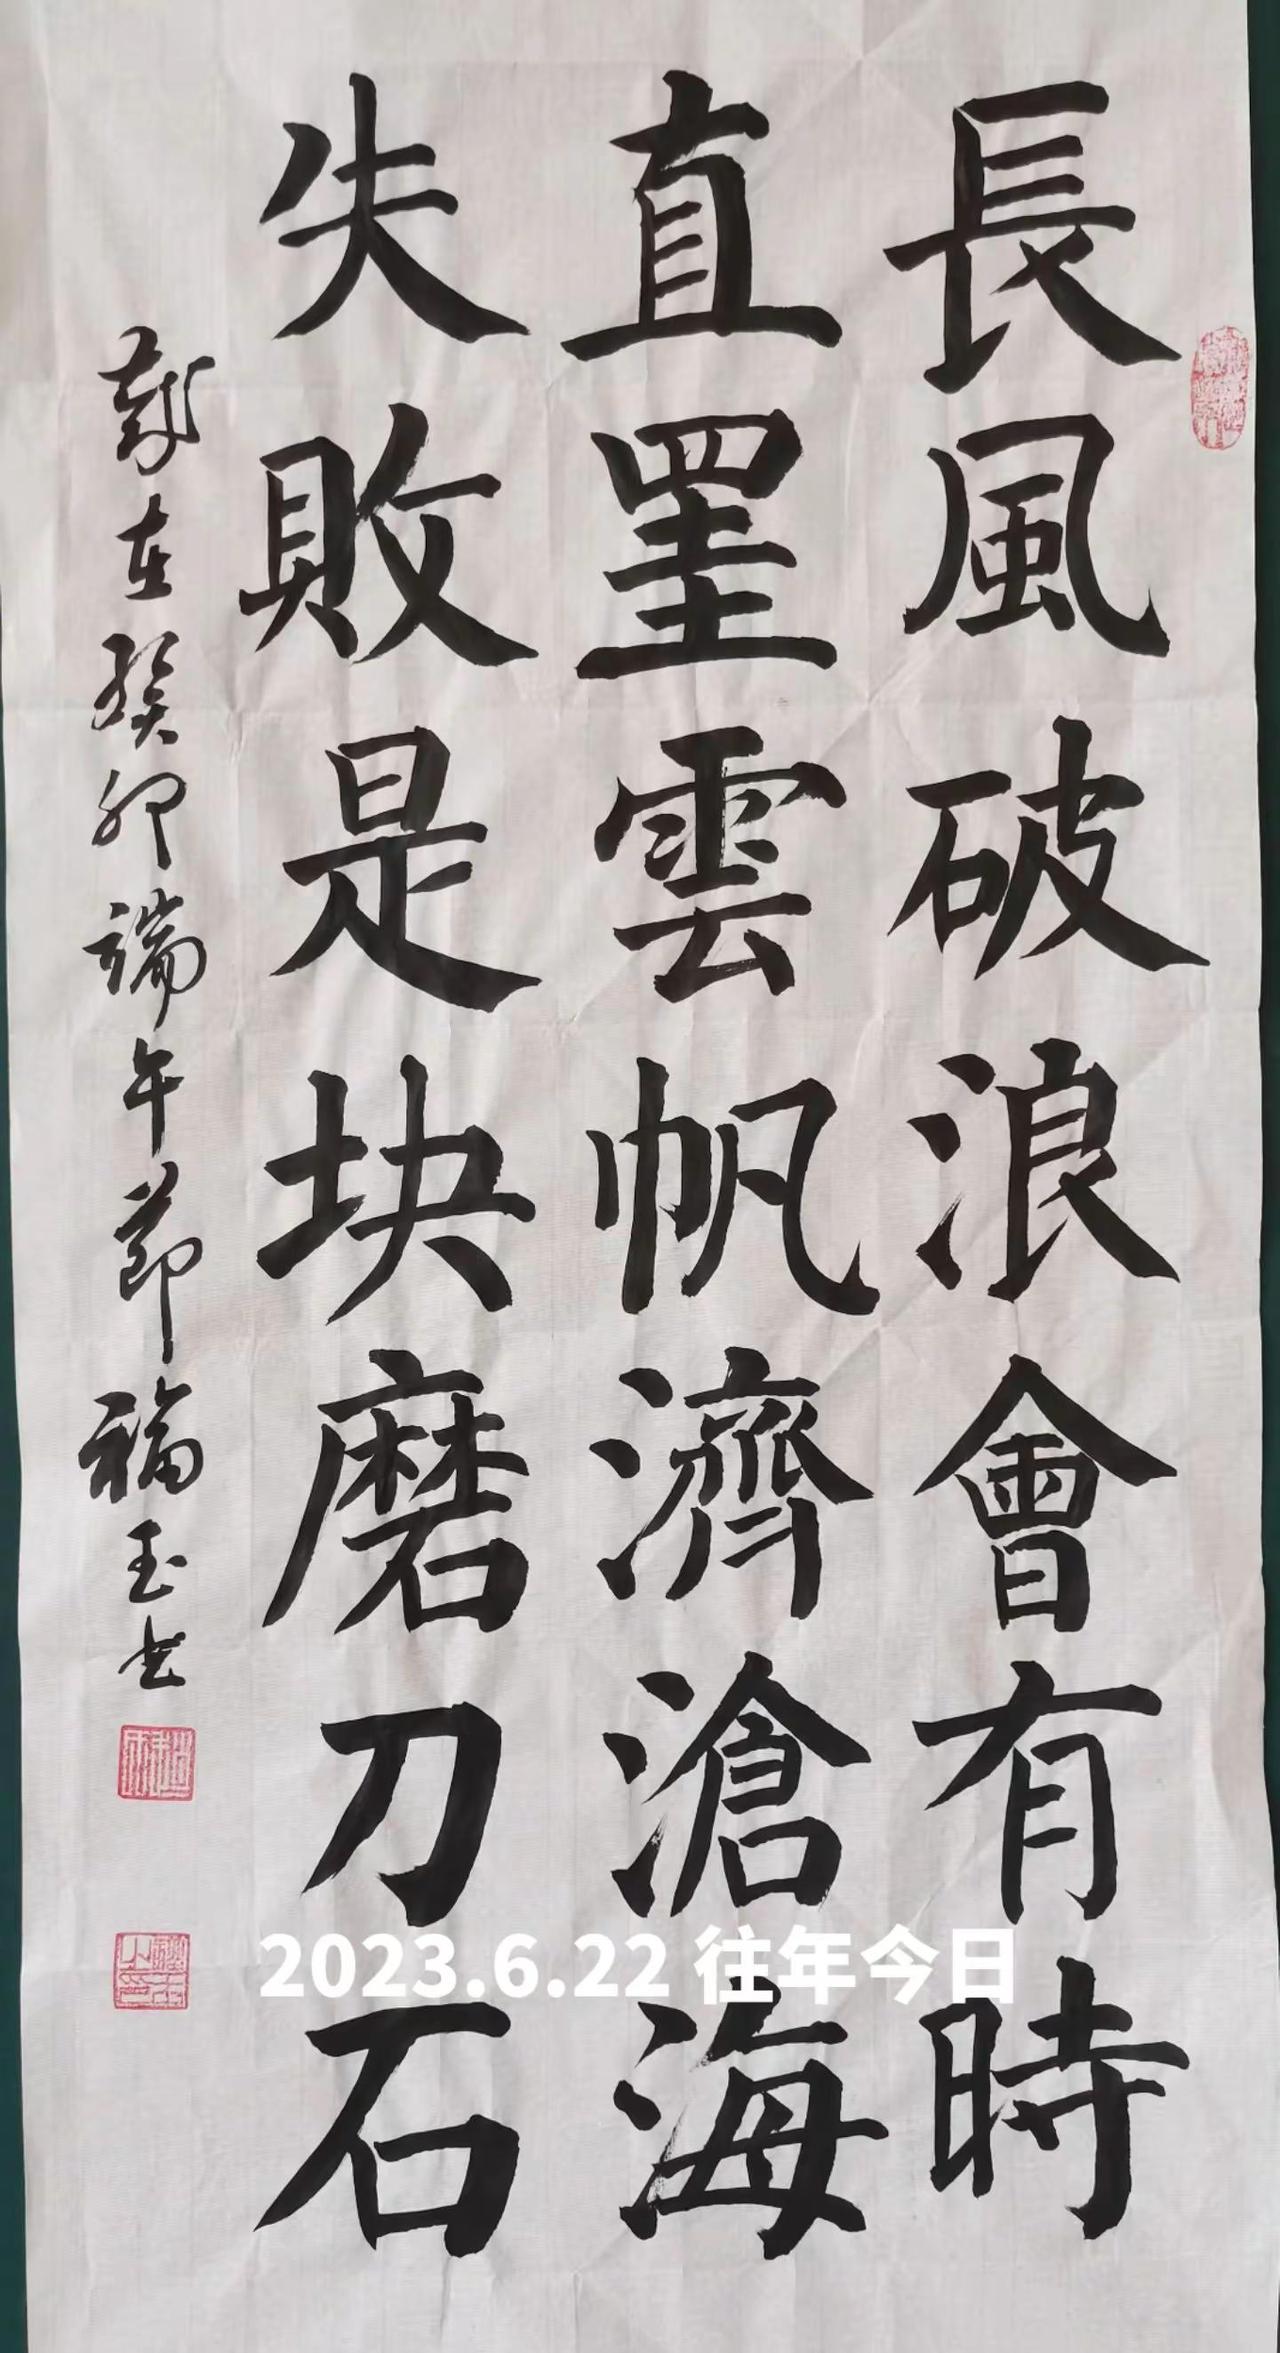 長風破浪會有時
直罣雲帆濟滄海
失敗是块磨刀石
歲在癸卯端午節福玉书
2023.6.22 往年今日